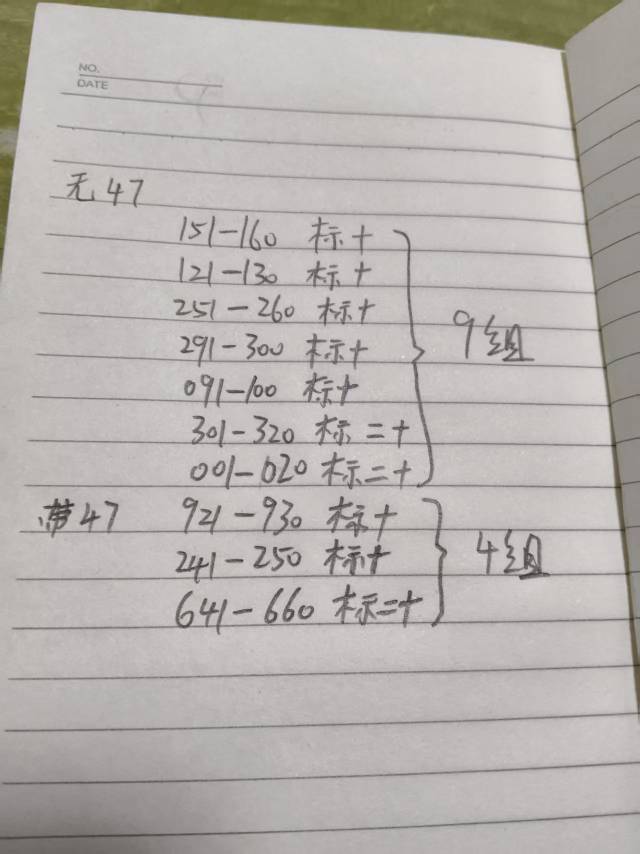 NO.
DATE
无47
151-160 标十
121-130 标十
251-260 标十
291-300 标十
091-100 标十
301-320 标二十
001-020 标二十
9组
带47 921-930 标十
241-250 标十
641-660 标二十
4组